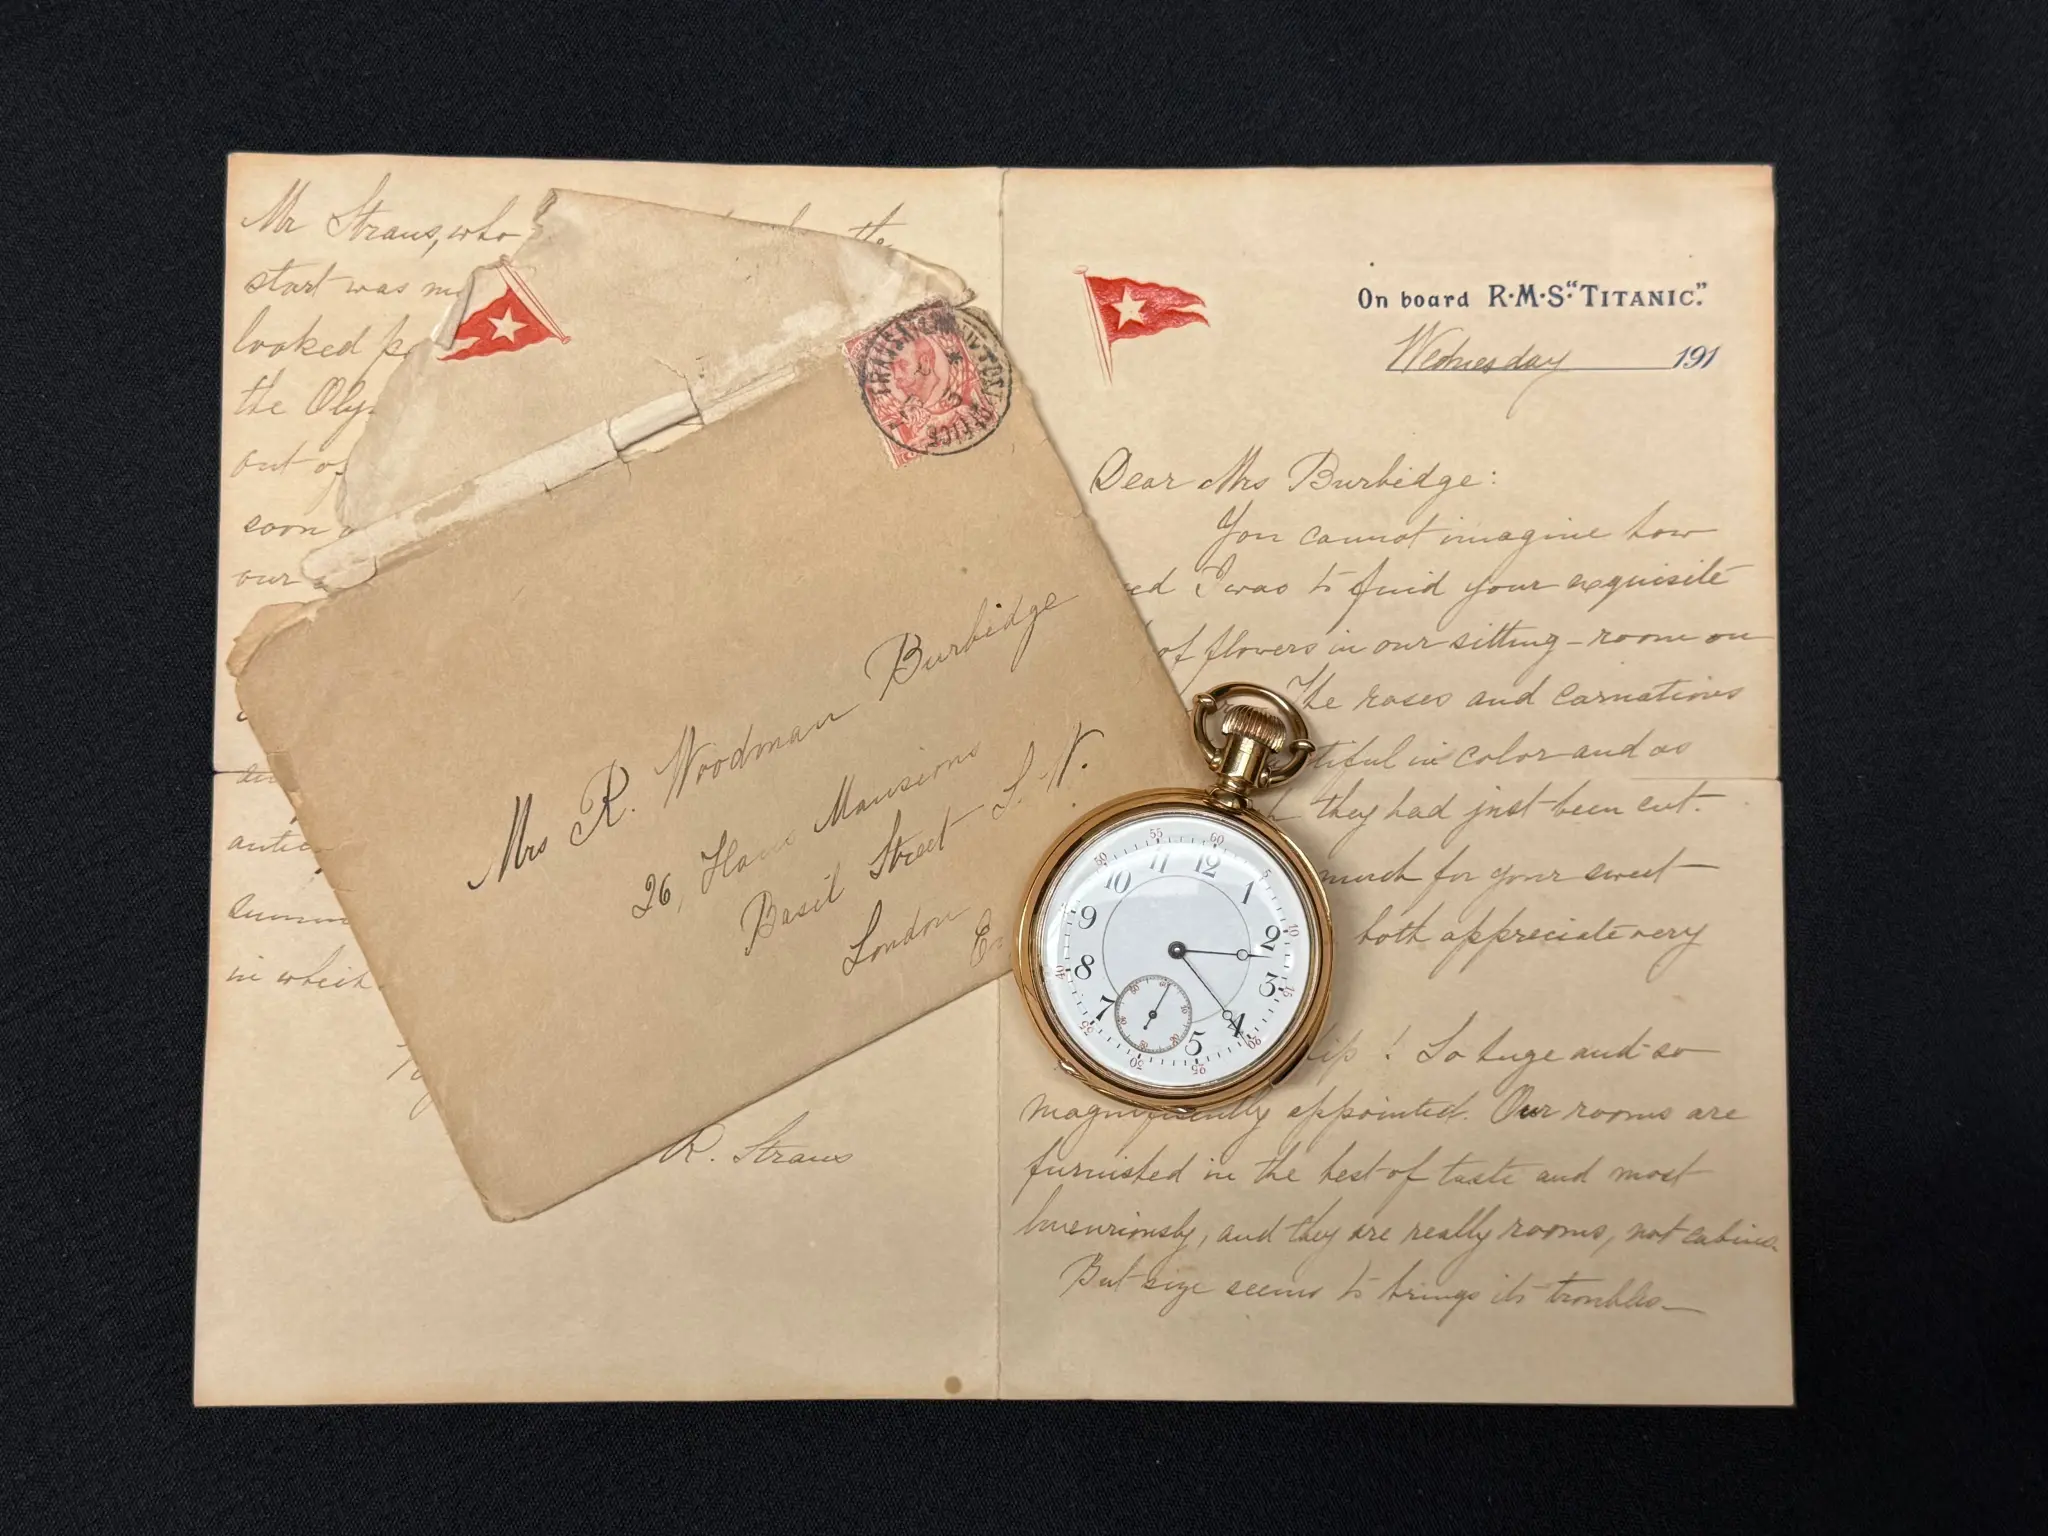 Mr Straus, who
the
start was
looked
the
out of
soon
our
in which
R. Straus
TRANSATLANTIC POST OFFICE
Mrs R. Woodman Burbidge
26, Hans Mansions
Basil Street S. W.
London
On board R·M·S "TITANIC."
Wednesday 191
Dear Mrs Burbidge:
You cannot imagine how
I was to find your exquisite
of flowers in our sitting-room on
The roses and carnations
in color and as
they had just been cut.
much for your sweet
both appreciate very
! So huge and so
magnificently appointed. Our rooms are
furnished in the best of taste and most
luxuriously, and they are really rooms, not cabins.
But size seems to brings its troubles—
55 60 5 10 15 20 25 30 35 40 50
11 12 1 2 3 4 5 7 8 9 10
60